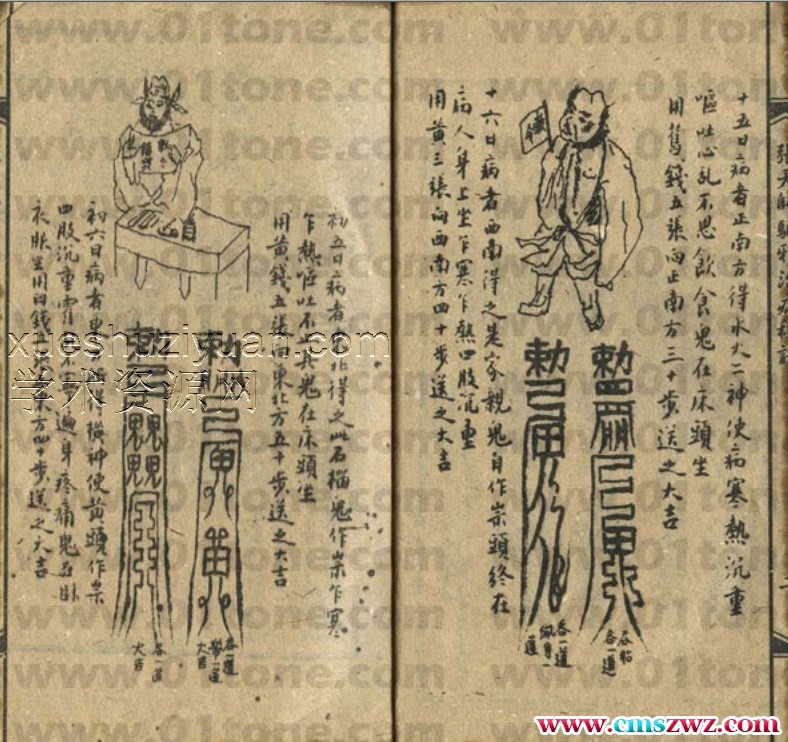 張天師
十五日病者正南方得水火二神使病寒熱沉重
嘔吐心乱不思飲食鬼在床頭坐
用舊錢五張向正南方三十步送之大吉
十六日病者西南得之是家親鬼自作祟頭終在
病人身上坐乍寒乍熱四肢沉重
用黄三張向西南方四十步送之大吉
勅
各一道
勅
吞一道
初五日病者東北得之此石榴鬼作祟乍寒
乍熱嘔吐不止其鬼在床頭坐
用黄錢五張向東北方五十步送之大吉
初六日病者東 得橫神使黄頭作祟
四肢沉重 不寧遍身疼痛鬼在卧
衣服坐用白錢 東方四十步送之大吉
勅
大吉
勅
各一道
大吉
www.01tone.com
xueshuziyuan.com
学术资源网
www.cmszwz.com